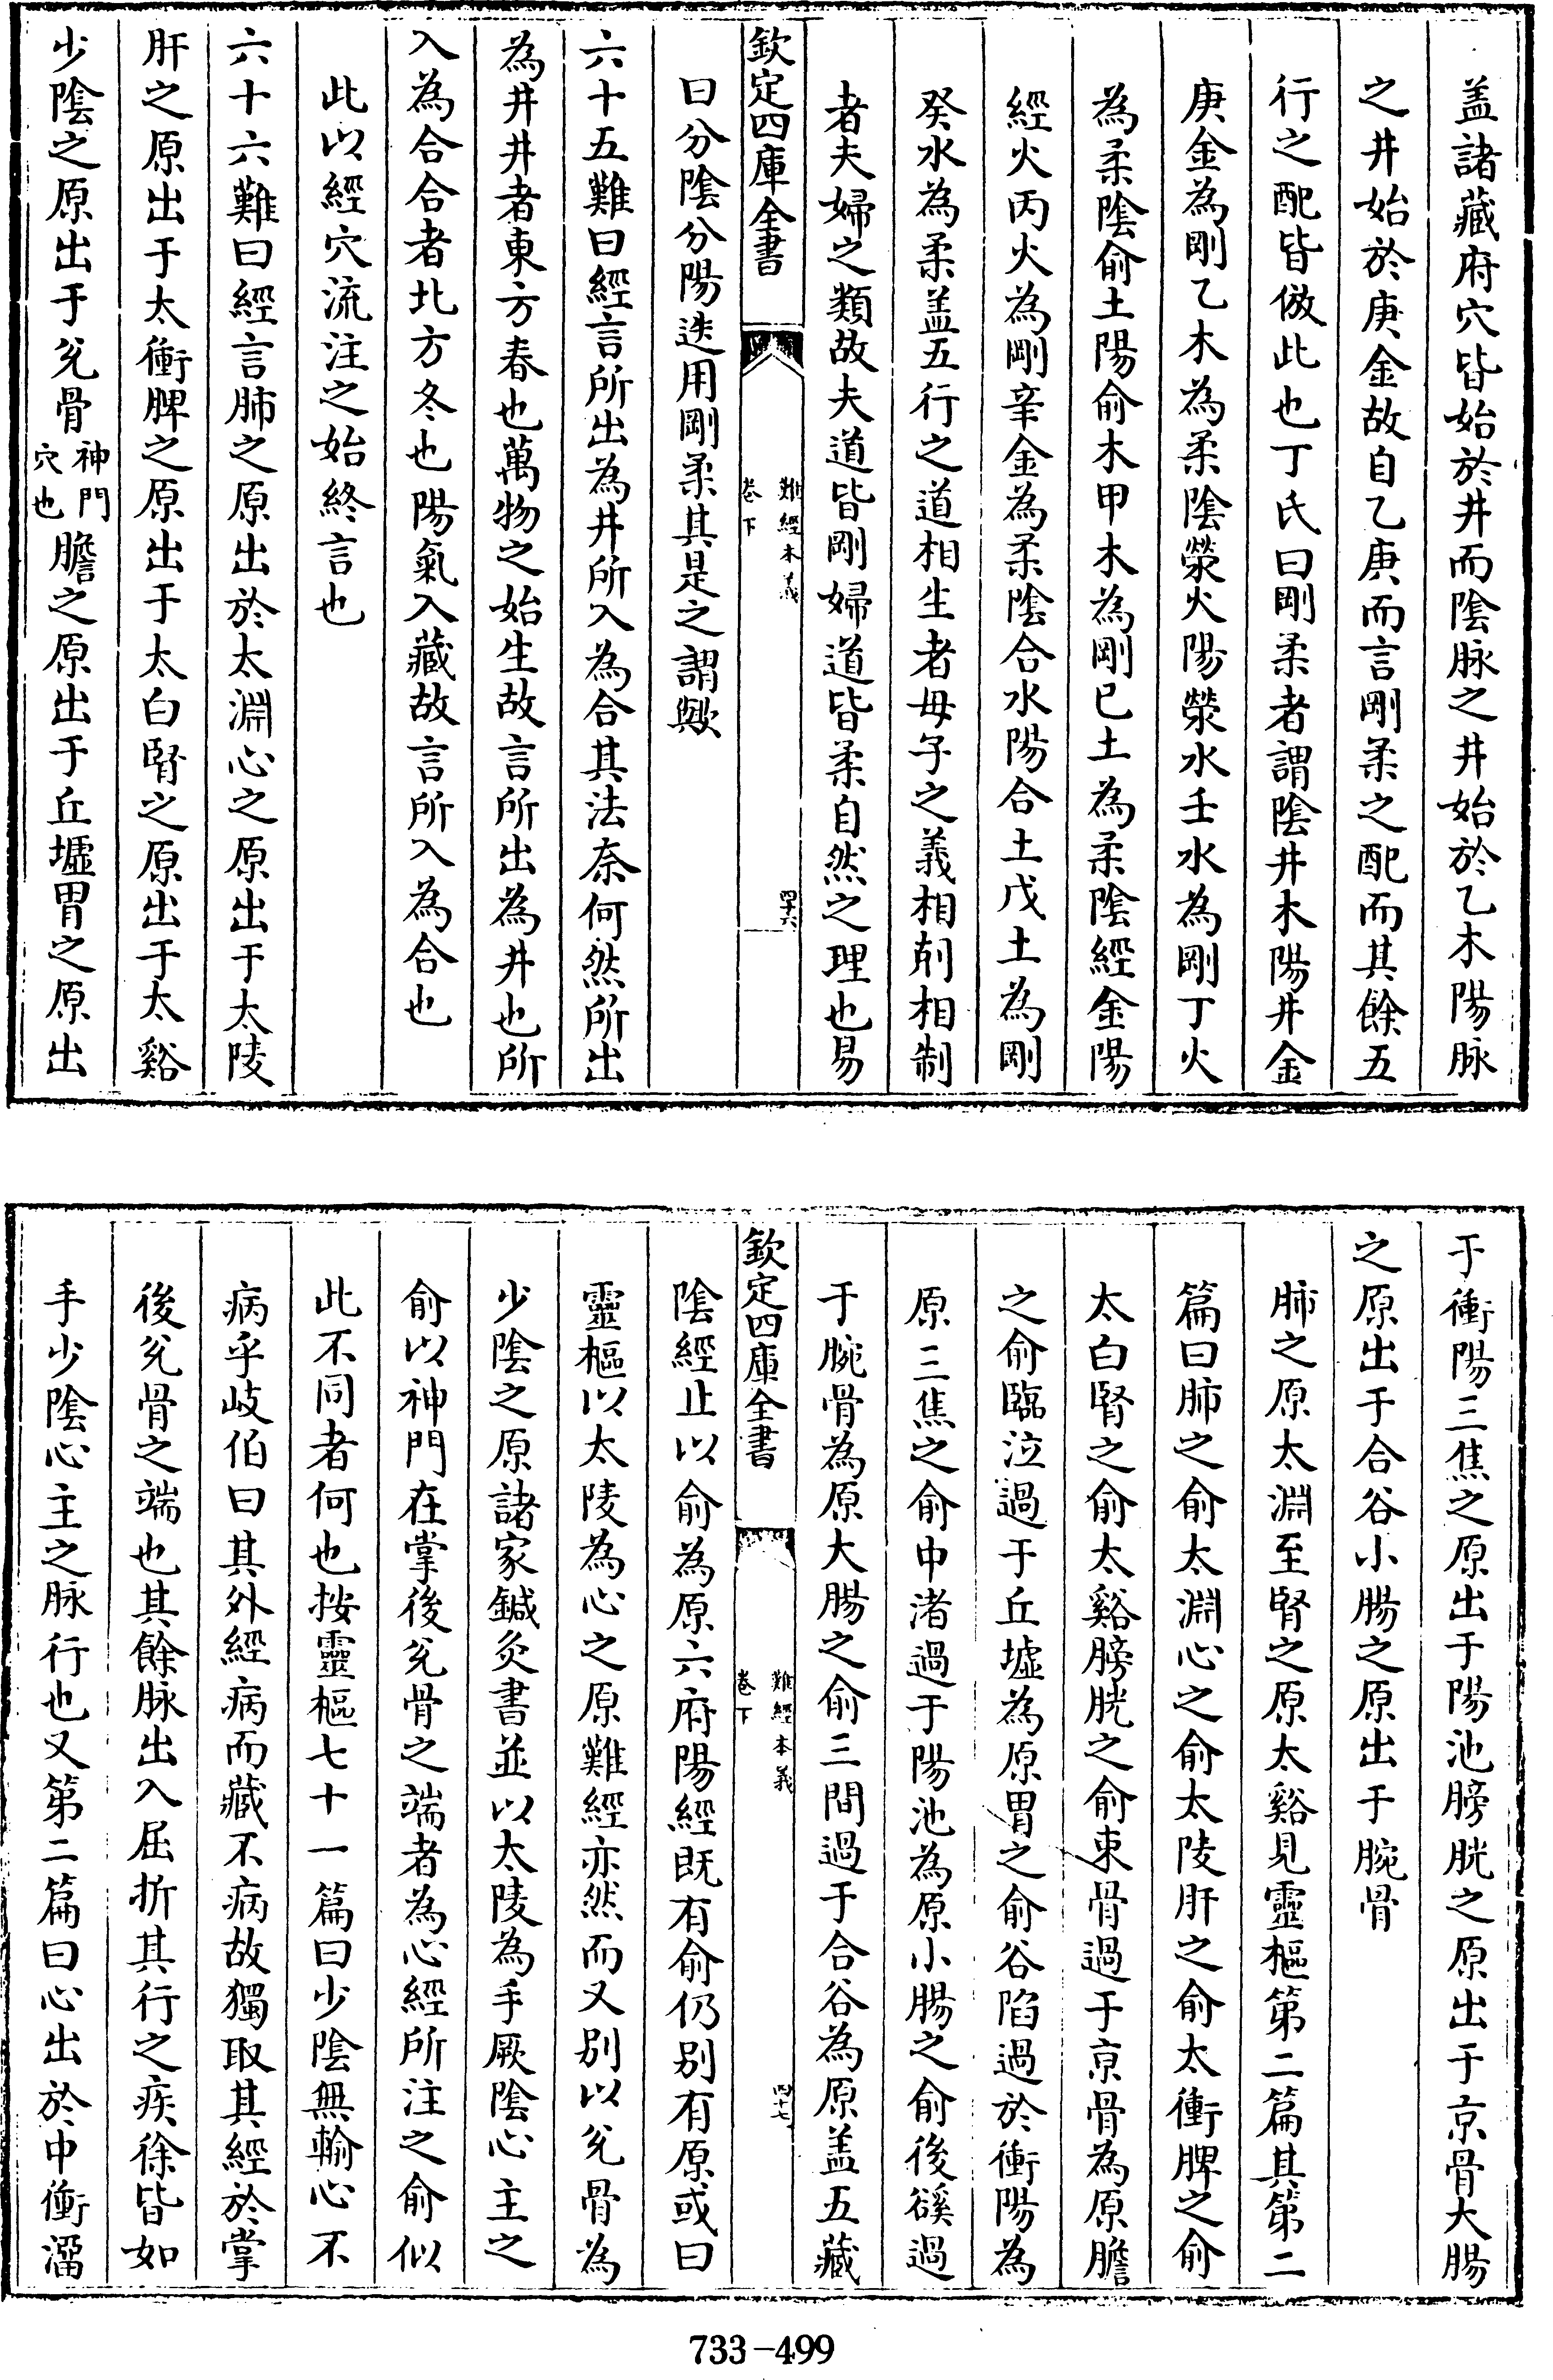 盖諸藏府穴皆始於井而陰脉之井始於乙木陽脉
之井始於庚金故自乙庚而言剛柔之配而其餘五
行之配皆倣此也丁氏曰剛柔者謂陰井木陽井金
庚金為剛乙木為柔陰滎火陽滎水壬水為剛丁火
為柔陰俞土陽俞木甲木為剛已土為柔陰經金陽
經火丙火為剛辛金為柔陰合水陽合土戊土為剛
癸水為柔盖五行之道相生者母子之義相剋相制
者夫婦之類故夫道皆剛婦道皆柔自然之理也易
欽定四庫全書
難經本義
卷下
四十六
曰分陰分陽迭用剛柔其是之謂歟
六十五難曰經言所出為井所入為合其法奈何然所出
為井井者東方春也萬物之始生故言所出為井也所
入為合合者北方冬也陽氣入藏故言所入為合也
此以經穴流注之始終言也
六十六難曰經言肺之原出於太淵心之原出于太陵
肝之原出于太衝脾之原出于太白腎之原出于太谿
少陰之原出于兊骨神門穴也膽之原出于丘墟胃之原出
于衝陽三焦之原出于陽池膀胱之原出于京骨大腸
之原出于合谷小腸之原出于腕骨
肺之原太淵至腎之原太谿見靈樞第二篇其第二
篇曰肺之俞太淵心之俞太陵肝之俞太衝脾之俞
太白腎之俞太谿膀胱之俞束骨過于京骨為原膽
之俞臨泣過于丘墟為原胃之俞谷陷過於衝陽為
原三焦之俞中渚過于陽池為原小腸之俞後谿過
于腕骨為原大腸之俞三間過于合谷為原盖五藏
欽定四庫全書
難經本義
卷下
四十七
陰經止以俞為原六府陽經既有俞仍别有原或曰
靈樞以太陵為心之原難經亦然而又别以兊骨為
少陰之原諸家鍼灸書並以太陵為手厥陰心主之
俞以神門在掌後兊骨之端者為心經所注之俞似
此不同者何也按靈樞七十一篇曰少陰無輸心不
病乎岐伯曰其外經病而藏不病故獨取其經於掌
後兊骨之端也其餘脉出入屈折其行之疾徐皆如
手少陰心主之脉行也又第二篇曰心出於中衝溜
733-499